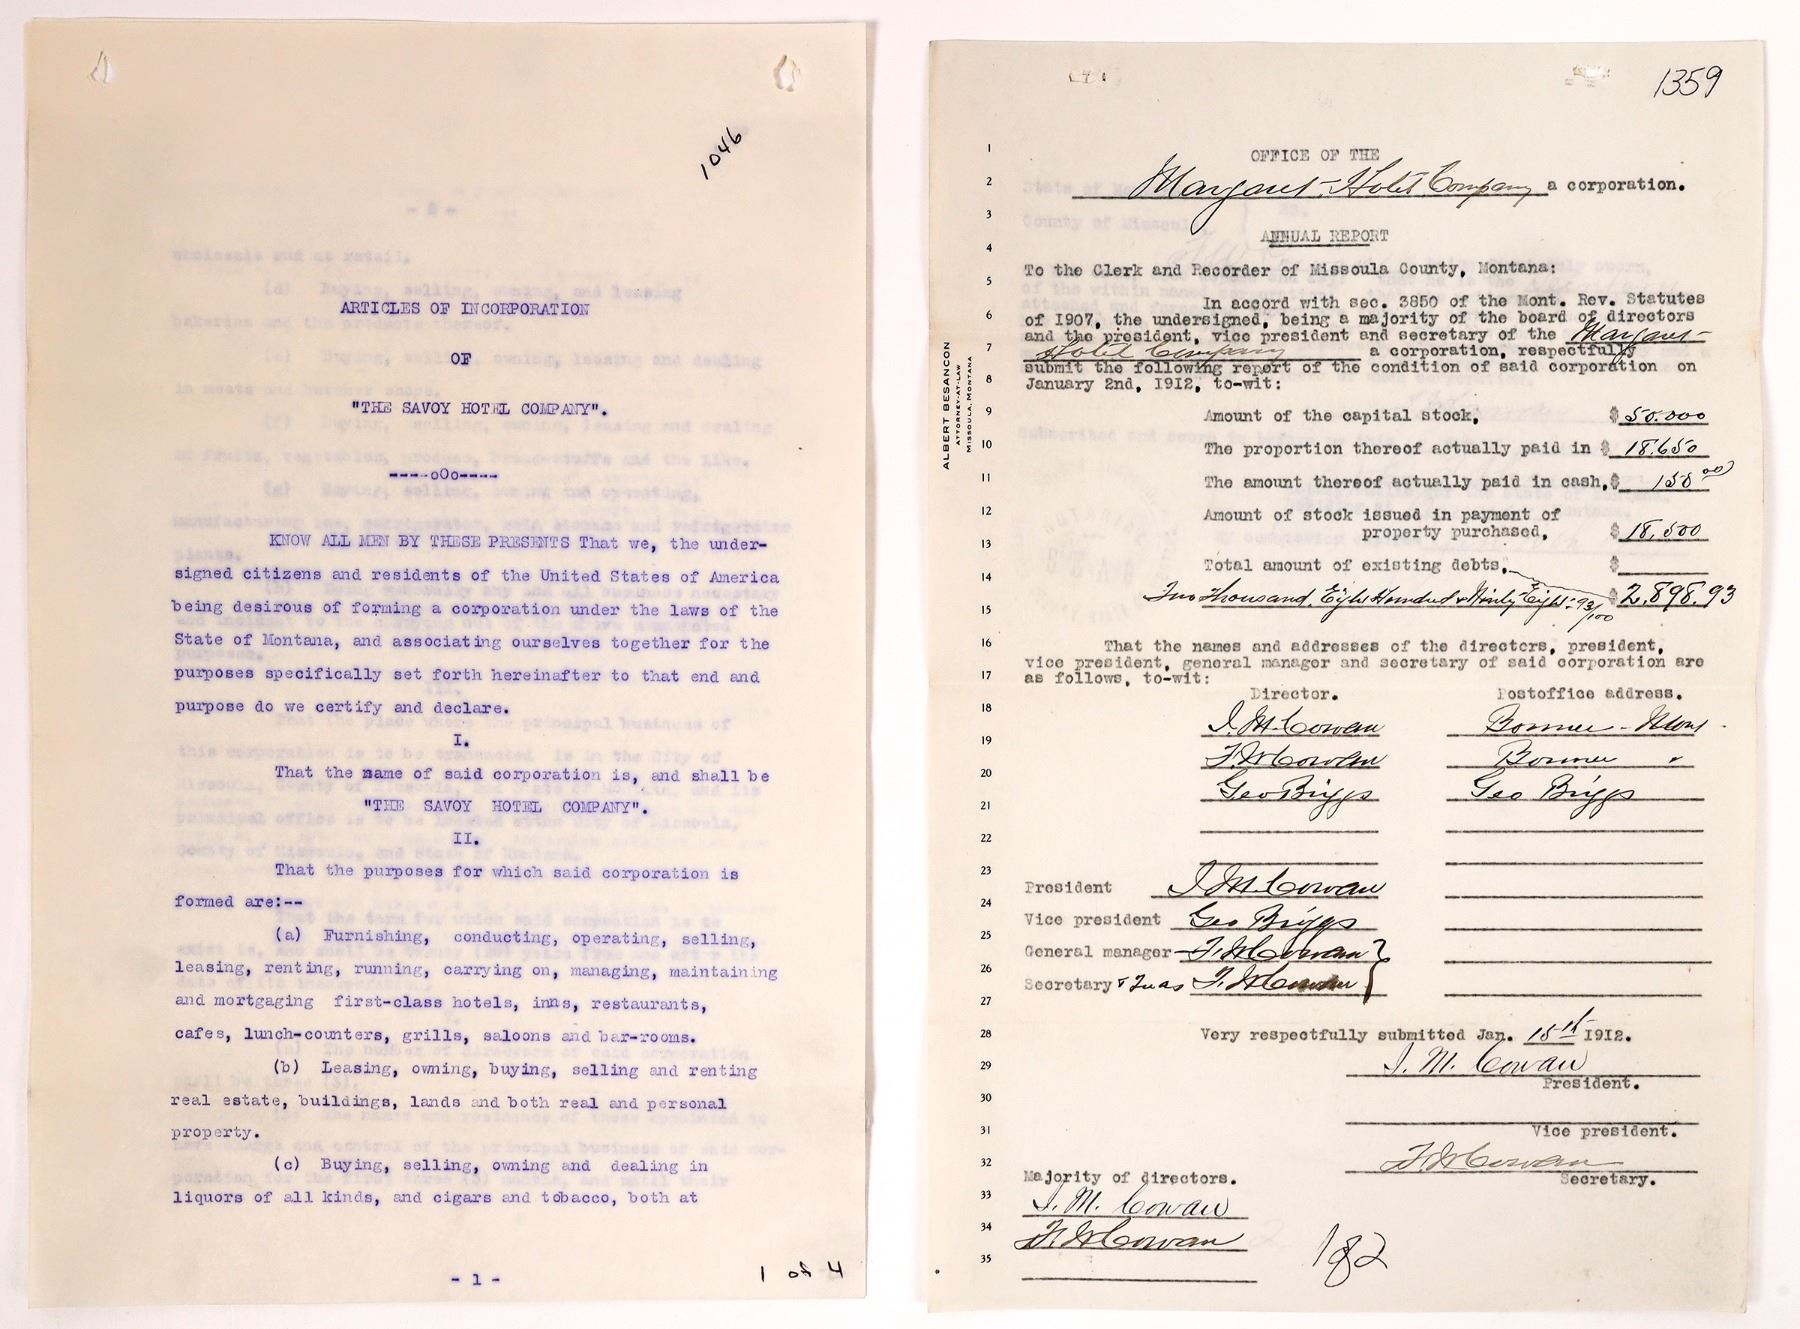 1046
ARTICLES OF INCORPORATION
OF
"THE SAVOY HOTEL COMPANY".
----oOo----
KNOW ALL MEN BY THESE PRESENTS That we, the under-
signed citizens and residents of the United States of America
being desirous of forming a corporation under the laws of the
State of Montana, and associating ourselves together for the
purposes specifically set forth hereinafter to that end and
purpose do we certify and declare.
I.
That the name of said corporation is, and shall be
"THE SAVOY HOTEL COMPANY".
II.
That the purposes for which said corporation is
formed are:--
(a) Furnishing, conducting, operating, selling,
leasing, renting, running, carrying on, managing, maintaining
and mortgaging first-class hotels, inns, restaurants,
cafes, lunch-counters, grills, saloons and bar-rooms.
(b) Leasing, owning, buying, selling and renting
real estate, buildings, lands and both real and personal
property.
(c) Buying, selling, owning and dealing in
liquors of all kinds, and cigars and tobacco, both at
- 1 -
1 of 4
1359
OFFICE OF THE
Margaret Hotel Company a corporation.
ANNUAL REPORT
To the Clerk and Recorder of Missoula County, Montana:
In accord with sec. 3850 of the Mont. Rev. Statutes
of 1907, the undersigned, being a majority of the board of directors
and the president, vice president and secretary of the Margaret
Hotel Company a corporation, respectfully
submit the following report of the condition of said corporation on
January 2nd, 1912, to-wit:
Amount of the capital stock, $ 50.000
The proportion thereof actually paid in $ 18.650
The amount thereof actually paid in cash, $ 150 00)
Amount of stock issued in payment of
property purchased, $ 18,500
Total amount of existing debts, $
Two Thousand, Eight Hundred & Ninty Eight 93/100 $ 2.898.93
That the names and addresses of the directors, president,
vice president, general manager and secretary of said corporation are
as follows, to-wit:
Director. Postoffice address.
I. M. Cowan Bonner - Mont
F. M Cowan Bonner "
Geo Briggs Geo Briggs
President I. M. Cowan
Vice president Geo Briggs
General manager F. M Cowan
Secretary & Treas F. M Cowan
Very respectfully submitted Jan. 15th 1912.
I. M. Cowan
President.
Vice president.
F. M Cowan
Secretary.
Majority of directors.
I. M. Cowan
F. M Cowan
1 of 2
ALBERT BESANCON
ATTORNEY-AT-LAW
MISSOULA, MONTANA
1
2
3
4
5
6
7
8
9
10
11
12
13
14
15
16
17
18
19
20
21
22
23
24
25
26
27
28
29
30
31
32
33
34
35